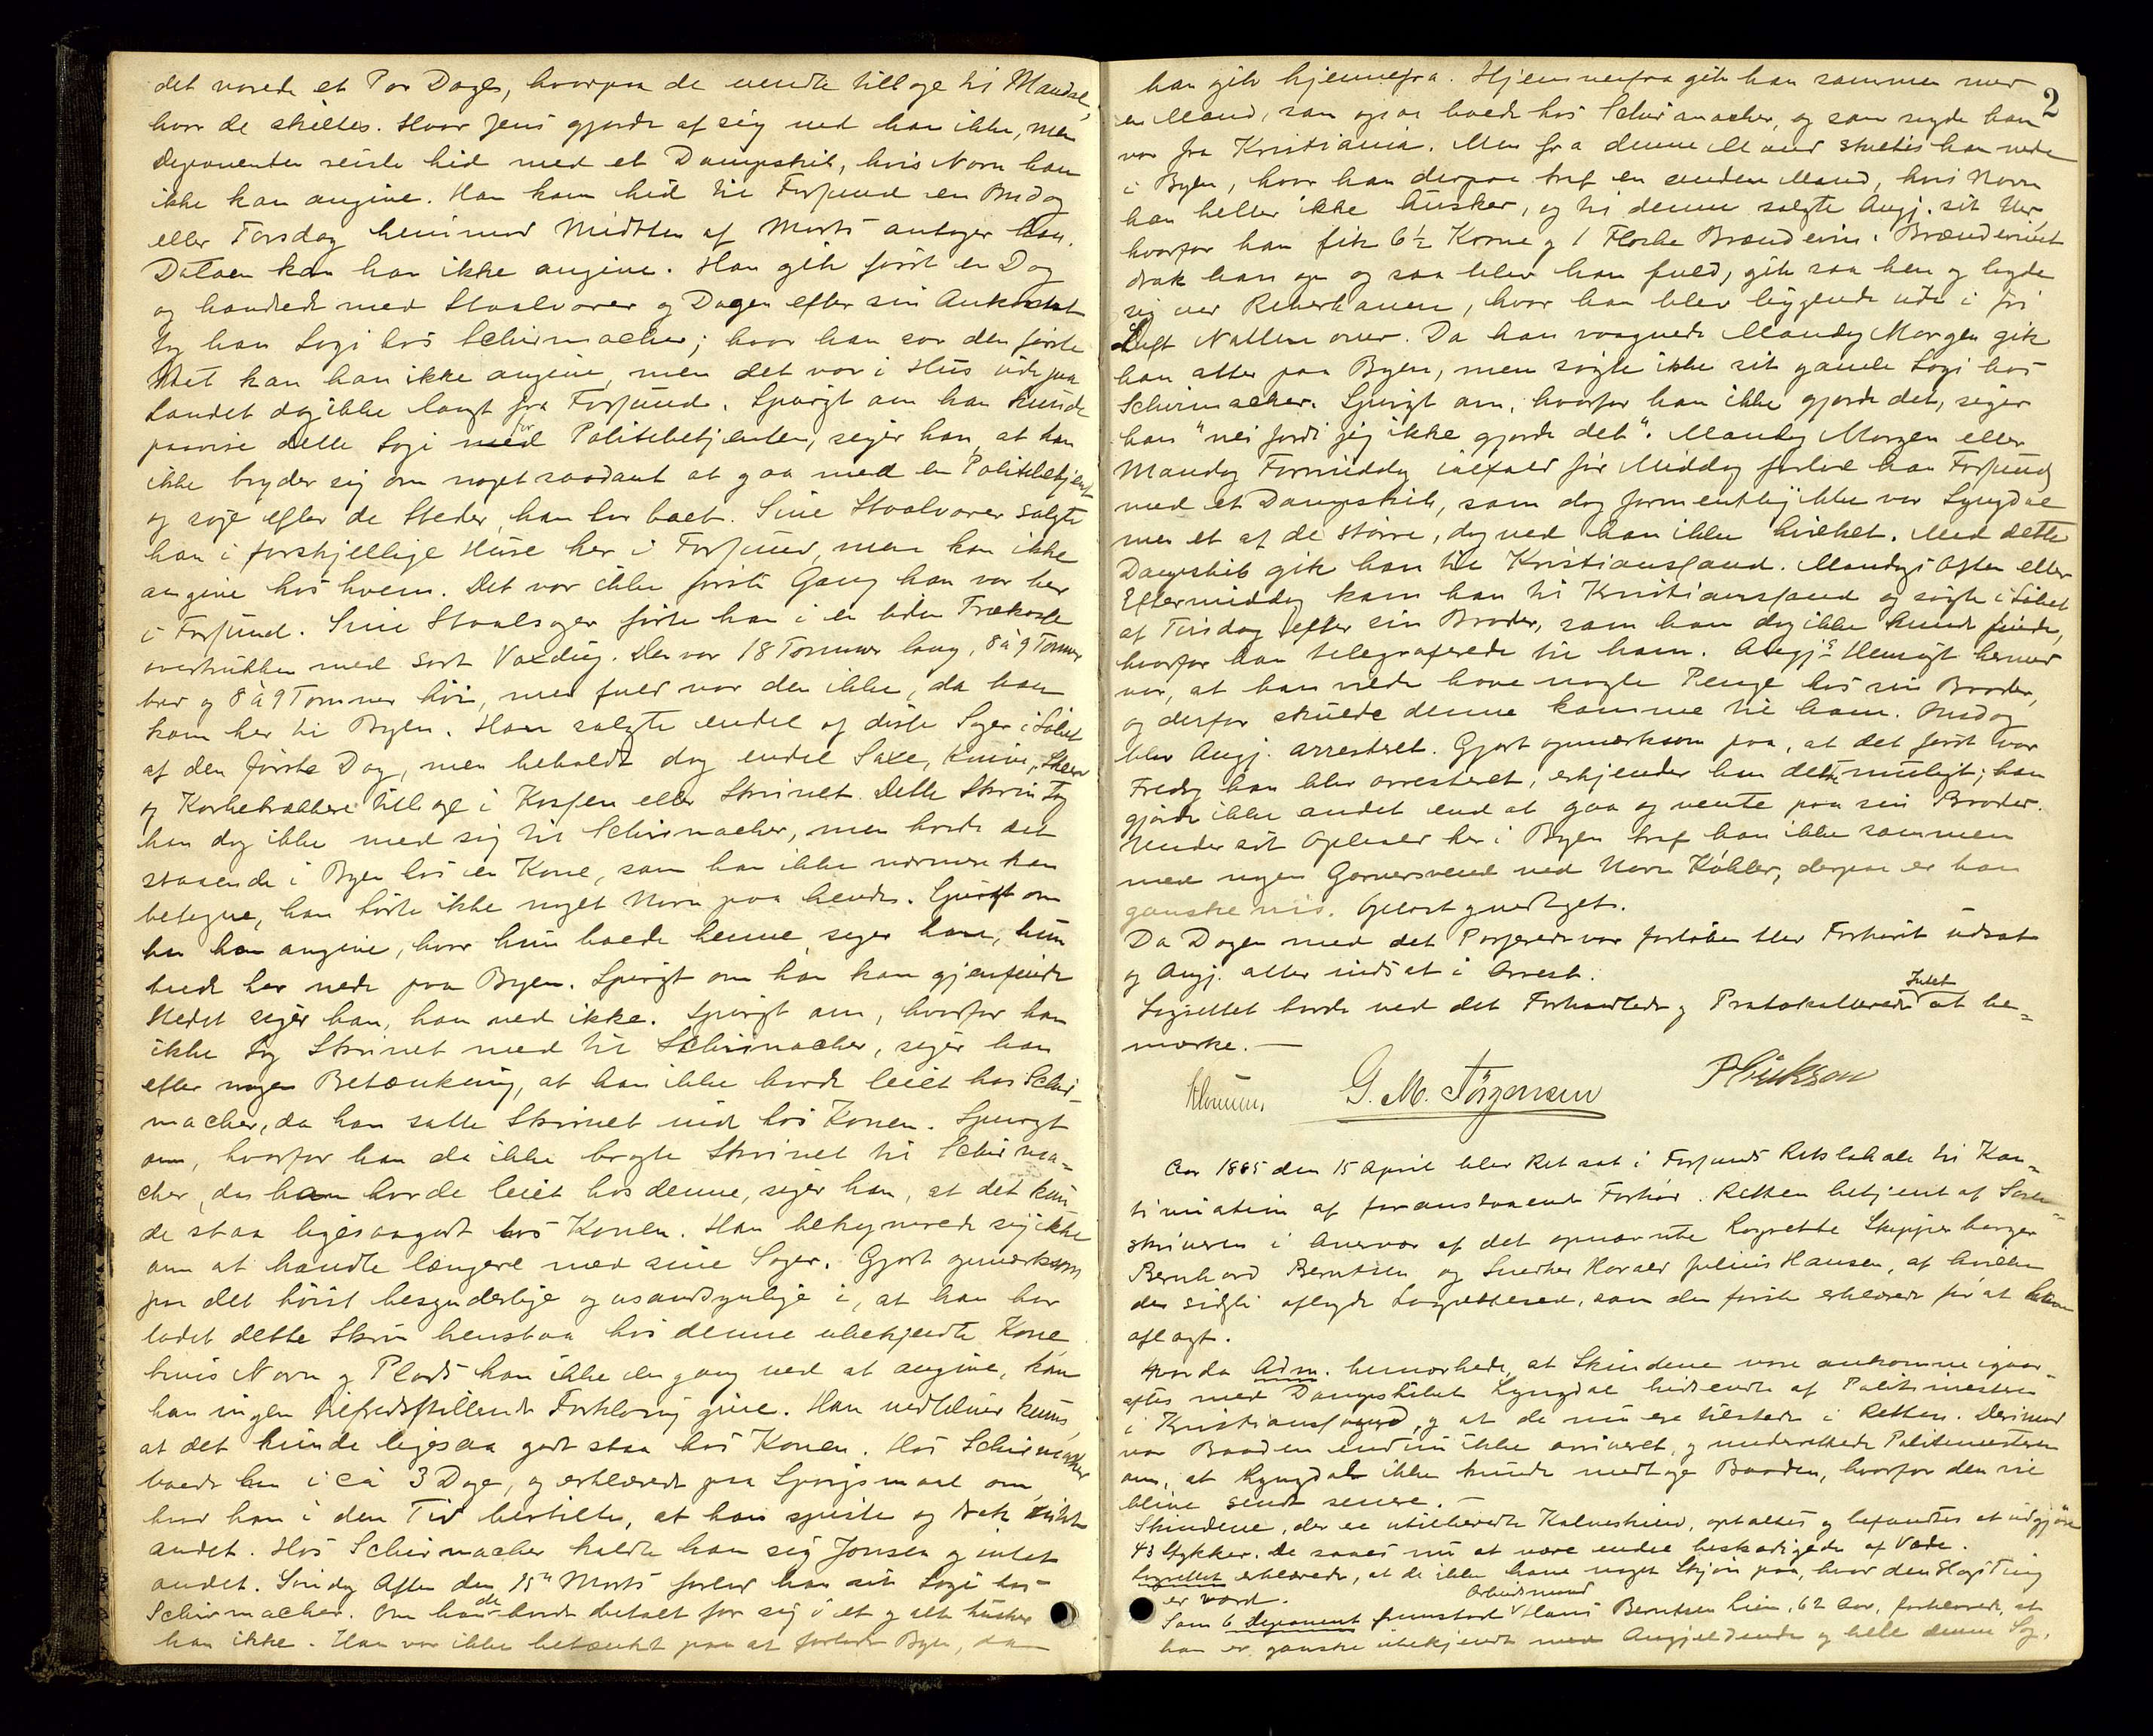 det varede et Par Dage, hvorpaa de vendte tillage til Mandal,
hvor de skiltes. Hvor Jens gjorde af sig ved han ikke, men
Deponenten reiste hid med et Dampskib, hvis Navn han
ikke kan angive. Han kom hid til Farsund en Onsdag
eller Torsdag henimod Midten af Marts antager han.
Datoen kan han ikke angive. Han gik først en Dag
og handlede med Staalvarer og Dagen efter sin Ankomst
tog han Logi hos Schirmacher; hvor han var den første
Nat kan han ikke angive, men det var i Hus ude paa
Landet dog ikke langt fra Farsund. Spurgt om han kunde
paavise dette Logi for Politibetjenten, siger han, at han
ikke bryder sig om noget saadant at gaa med en Politibetjent
og søge efter de Steder, han har boet. Sine Staalvarer solgte
han i forskjellige Huse her i Farsund, men kan ikke
angive hos hvem. Det var ikke første Gang han var her
i Farsund. Sine Staalsager førte han i en liden Trækasse
overtrukken med sort Voxdug. Den var 18 Tommer lang, 8 à 9 Tommer
bred og 8 à 9 Tommer høi, men fuld var den ikke, da han
kom her til Byen. Han solgte endel af disse Sager i Løbet
af den første Dag, men beholdt dog endel Saxe, Knive, Skeer
og Korketrækkere tilbage i Kassen eller Skrinet. Dette Skrin tog
han dog ikke med sig til Schirmacher, men havde det
staaende i Byen hos en Kone, som han ikke nærmere kan
betegne, han hørte ikke noget Navn paa hende. Spurgt om
han kan angive, hvor hun boede henne, siger han, hun
boede her nede paa Byen. Spurgt om han kan gjenfinde
Stedet siger han, han ved ikke. Spurgt om, hvorfor han
ikke tog Skrinet med til Schirmacher, siger han
efter nogen Betænkning, at han ikke havde leiet hos Schir-
macher, da han satte Skrinet ind hos Konen. Spurgt
om, hvorfor han da ikke bragte Skrinet til Schirma-
cher, da han havde leiet hos denne, siger han, at det kun-
de staa ligesaagodt hos Konen. Han bekymrede sig ikke
om at handle længere med sine Sager. Gjort opmærksom
paa det høist besynderlige og usandsynlige i, at han har
ladet dette Skrin henstaa hos denne ubekjendte Kone
hvis Navn og Plads han ikke engang ved at angive, kan
han ingen tilfredsstillende Forklaring give. Han vedbliver kuns,
at det kunde ligesaa godt staa hos Konen. Hos Schirmacher
boede han i ca 3 Dage, og erklærede paa Spørgsmaal om,
hvad han i den Tid bestilte, at han spiste og drak intet
andet. Hos Schirmacher kaldte han sig Jonsen og intet
andet. Søndag Aften den 15de Marts forlod han sit Logi hos
Schirmacher. Om han da havde betalt for sig i et og alt husker
han ikke. Han var ikke betænkt paa at forlade Byen, da
2
han gik hjemmefra. Hjemmenfra gik han sammen med
en Mand, som ogsaa boede hos Schirmacher, og som sagde han
var fra Kristiania. Men fra denne Mand skiltes han nede
i Byen, hvor han derpaa traf en anden Mand, hvis Navn
han heller ikke husker, og til denne solgte Angj. sit Uhr,
hvorfor han fik 6½ Krone og 1 Flaske Brændevin. Brændevinet
drak han op og saa blev han fuld, gik saa hen og lagde
sig ved Reberbanen, hvor han blev liggende ude i fri
Luft Natten over. Da han vaagnede Mandag Morgen gik
han atter paa Byen, men søgte ikke sit gamle Logi hos
Schirmacher. Spurgt om, hvorfor han ikke gjorde det, siger
han "nei fordi jeg ikke gjorde det". Mandag Morgen eller
Mandag Formiddag ialfald før Middag forlod han Farsund
med et Dampskib, som dog formentlig ikke var Lyngdal
men et af de større, dog ved han ikke hvilket. Med dette
Dampskib gik han til Kristiansand. Mandags Aften eller
Eftermiddag kom han til Kristianssand og søgte i Løbet
af Tirsdag efter sin Broder, som han dog ikke kunde finde,
hvorfor han telegraferede til ham. Angj.s Hensigt hermed
var, at han vilde have nogle Penge hos sin Broder,
og derfor skulde denne komme til ham. Onsdag
blev Angj. arresteret. Gjort opmærksom paa, at det først var
Fredag han blev arresteret, erkjender han dette muligt; han
gjorde ikke andet end at gaa og vente paa sin Broder.
Under sit Ophold her i Byen traf han ikke sammen
med nogen Garversvend ved Navn Köhler, derpaa er han
ganske vis. Oplæst og vedtaget.
Da Dagen med det Passerede var forløben blev Forhøret udsat
og Angj. atter indsat i Arrest.
Lagrettet havde ved det Forhandlede og Protokollerede Intet at be-
mærke. —
G. M. Törgersen
Aar 1885 den 15 April blev Ret sat i Farsunds Retslokale til Kon-
tinuation af foranstaaende Forhør. Retten betjent af Soren-
skriveren i Overvær af det opnævnte Lagrette Skipper borger
Bernhard Berntsen og Snedker Harald Julius Hansen, af hvilke
den sidste aflagde Lagretteed, som den første erklærede før at have
aflagt.
Hvorda Adm. bemærkede, at Skindene vare ankomne igaar-
aftes med Dampskibet Lyngdal hidsendte af Politimesteren
i Kristianssand, og at de nu ere tilstede i Retten. Derimod
var Baaden endnu ikke arriveret, og underrettede Politimesteren
om, at Lyngdal ikke kunde medtage Baaden, hvorfor den vil
blive sendt senere. —
Skindene, der ere utilberedte Kalveskind, optaltes og befandtes at udgjøre
43 Stykker. De saaes nu at være endel beskadigede af Væde.
Lagrettet erklærede, at de ikke have noget Skjøn paa, hvad den Slags Ting
er værd.
Som 6 Deponent fremstod Arbeidsmand Hans Berntsen Lien, 62 Aar, forklarede, at
han er ganske ubekjendt med Angjældende og hele denne Sag.